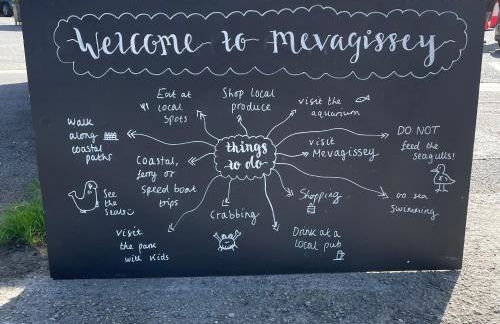 Welcome to Mevagissey
Eat at
local
spots
Shop local
produce
visit the
aquarium
Walk
along
coastal
paths
things
to do
visit
Mevagissey
DO NOT
feed the
seagulls!
Coastal,
ferry or
speed boat
trips
See
the
seals
Shopping
go sea
swimming
Crabbing
visit
the park
with kids
Drink at a
local pub